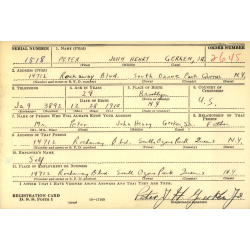 SERIAL NUMBER 1. NAME (Print) ORDER NUMBER
1818 PETER JOHN HENRY GERKEN, JR. 2648
2. ADDRESS (Print)
14912 Rockaway Blvd. South Ozone Park Queens N.Y.
3. TELEPHONE 4. AGE IN YEARS 5. PLACE OF BIRTH 6. COUNTRY OF CITIZENSHIP
29 Brooklyn
Ja 9 3892 28 1910 N.Y. U.S.
7. NAME OF PERSON WHO WILL ALWAYS KNOW YOUR ADDRESS 8. RELATIONSHIP OF THAT PERSON
Mr. Peter John Henry Gerken Sr. Father
9. ADDRESS OF THAT PERSON
14912 Rockaway Blvd South Ozone Park Queens N.Y.
10. EMPLOYER'S NAME
Self
11. PLACE OF EMPLOYMENT OR BUSINESS
14912 Rockaway Blvd South Ozone Park Queens N.Y.
I AFFIRM THAT I HAVE VERIFIED ABOVE ANSWERS AND THAT THEY ARE TRUE.
REGISTRATION CARD
D. S. S. FORM 1
Peter J. H. Gerken Jr.